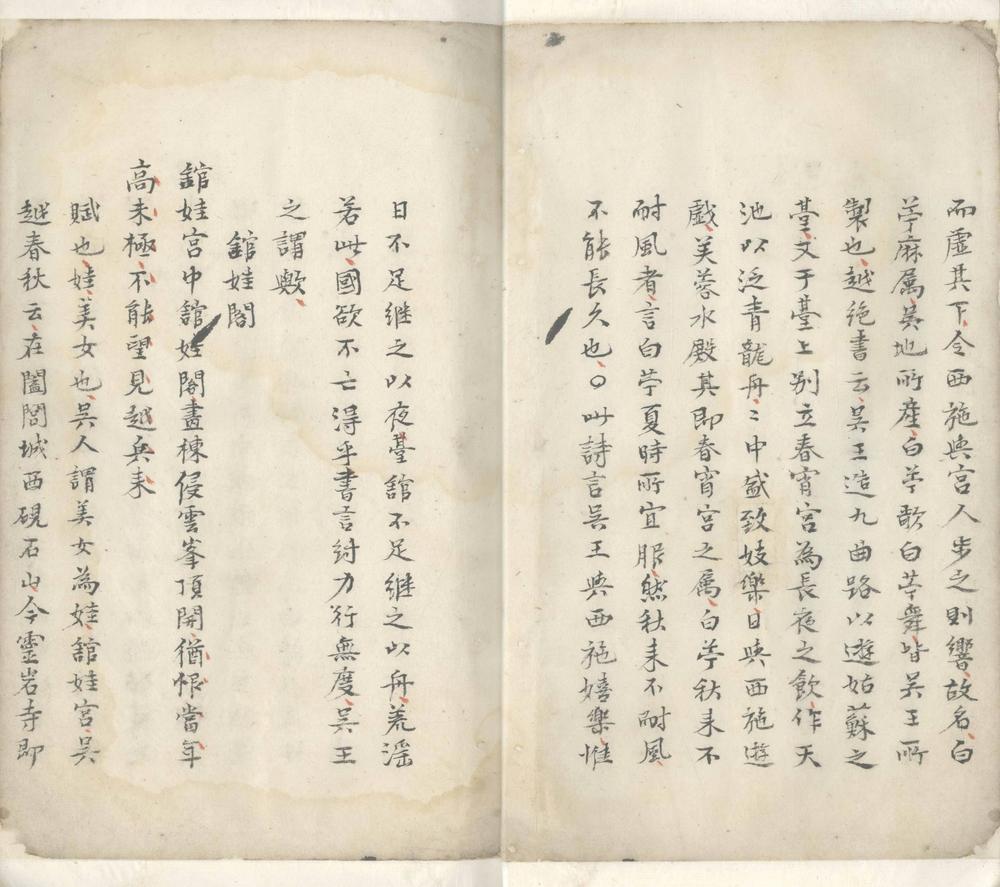 而虛其下令西施與宮人步之則響故名白
苧麻属吳地所產白苧歌白苧舞皆吳王所
製也越絶書云吳王造九曲路以遊姑蘇之
臺文于臺上別立春宵宮為長夜之飲作天
池以泛青龍舟〻中盛致妓樂日與西施遊
戯芙蓉水殿其即春宵宮之属白苧秋来不
耐風者言白苧夏時所宜服然秋来不耐風
不能長久也〇此詩言吳王與西施嬉樂惟
日不足継之以夜臺舘不足継之以舟荒滛
若此國欲不亡得乎書言紂力行無度吳王
之謂歟
舘娃閣
舘娃宮中舘娃閣畫棟侵雲峯頂開猶恨當年
高未極不能望見越兵来
賦也娃美女也吳人謂美女為娃舘娃宮吳
越春秋云在闔閭城西硯石山今靈岩寺即